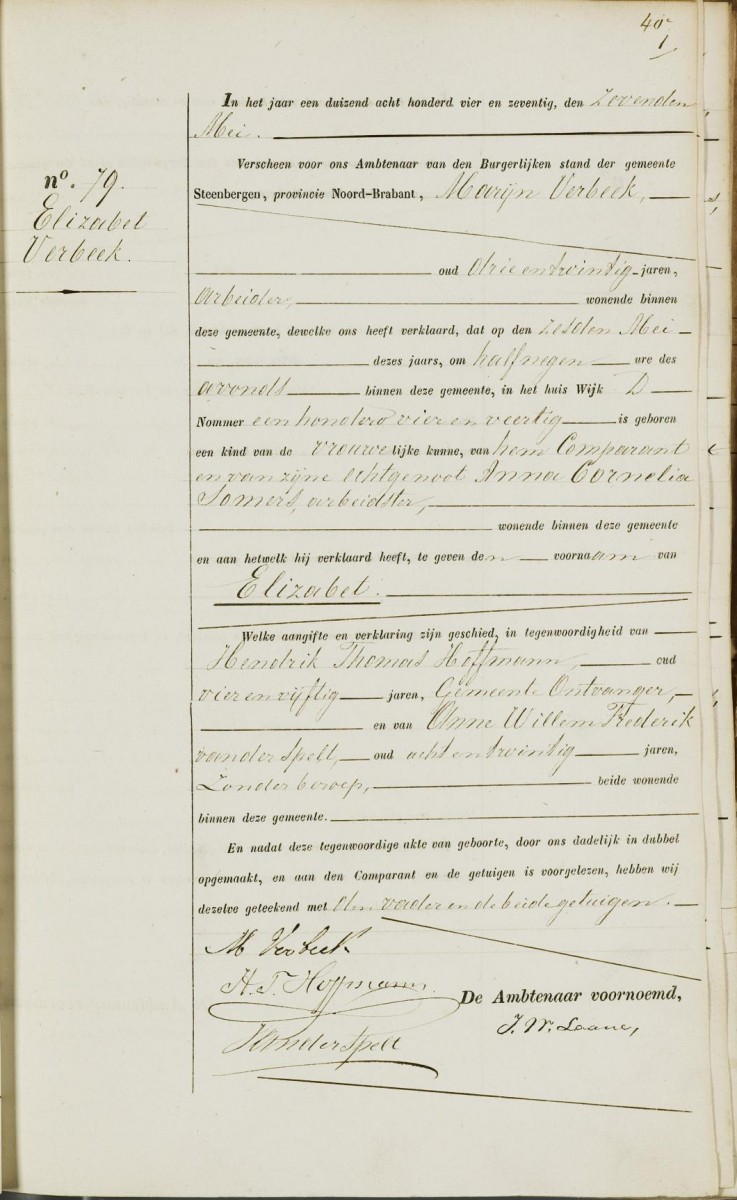 40
1
In het jaar een duizend acht honderd vier en zeventig, den Zevenden
Mei.
nº. 79.
Elizabet
Verbeek.
Verscheen voor ons Ambtenaar van den Burgerlijken stand der gemeente
Steenbergen, provincie Noord-Brabant, Marijn Verbeek,
oud drie en twintig jaren,
arbeider, wonende binnen
deze gemeente, dewelke ons heeft verklaard, dat op den zesden Mei
dezes jaars, om half negen ure des
avonds binnen deze gemeente, in het huis Wijk D
Nommer een honderd vier en veertig is geboren
een kind van de vrouwelijke kunne, van hem Comparant
en van zijne Echtgenoot Anna Cornelia
Somers, arbeidster,
wonende binnen deze gemeente
en aan hetwelk hij verklaard heeft, te geven den voornaam van
Elizabet.
Welke aangifte en verklaring zijn geschied, in tegenwoordigheid van
Hendrik Thomas Hoffmann, oud
vier en vijftig jaren, Gemeente Ontvanger,
en van Anne Willem Frederik
van der Spelt, oud acht en twintig jaren,
Zonder beroep, beide wonende
binnen deze gemeente.
En nadat deze tegenwoordige akte van geboorte, door ons dadelijk in dubbel
opgemaakt, en aan den Comparant en de getuigen is voorgelezen, hebben wij
dezelve geteekend met den vader en de beide getuigen.
M Verbeek
H. T. Hoffmann.
De Ambtenaar voornoemd,
J. W. Laane,
VanderSpelt